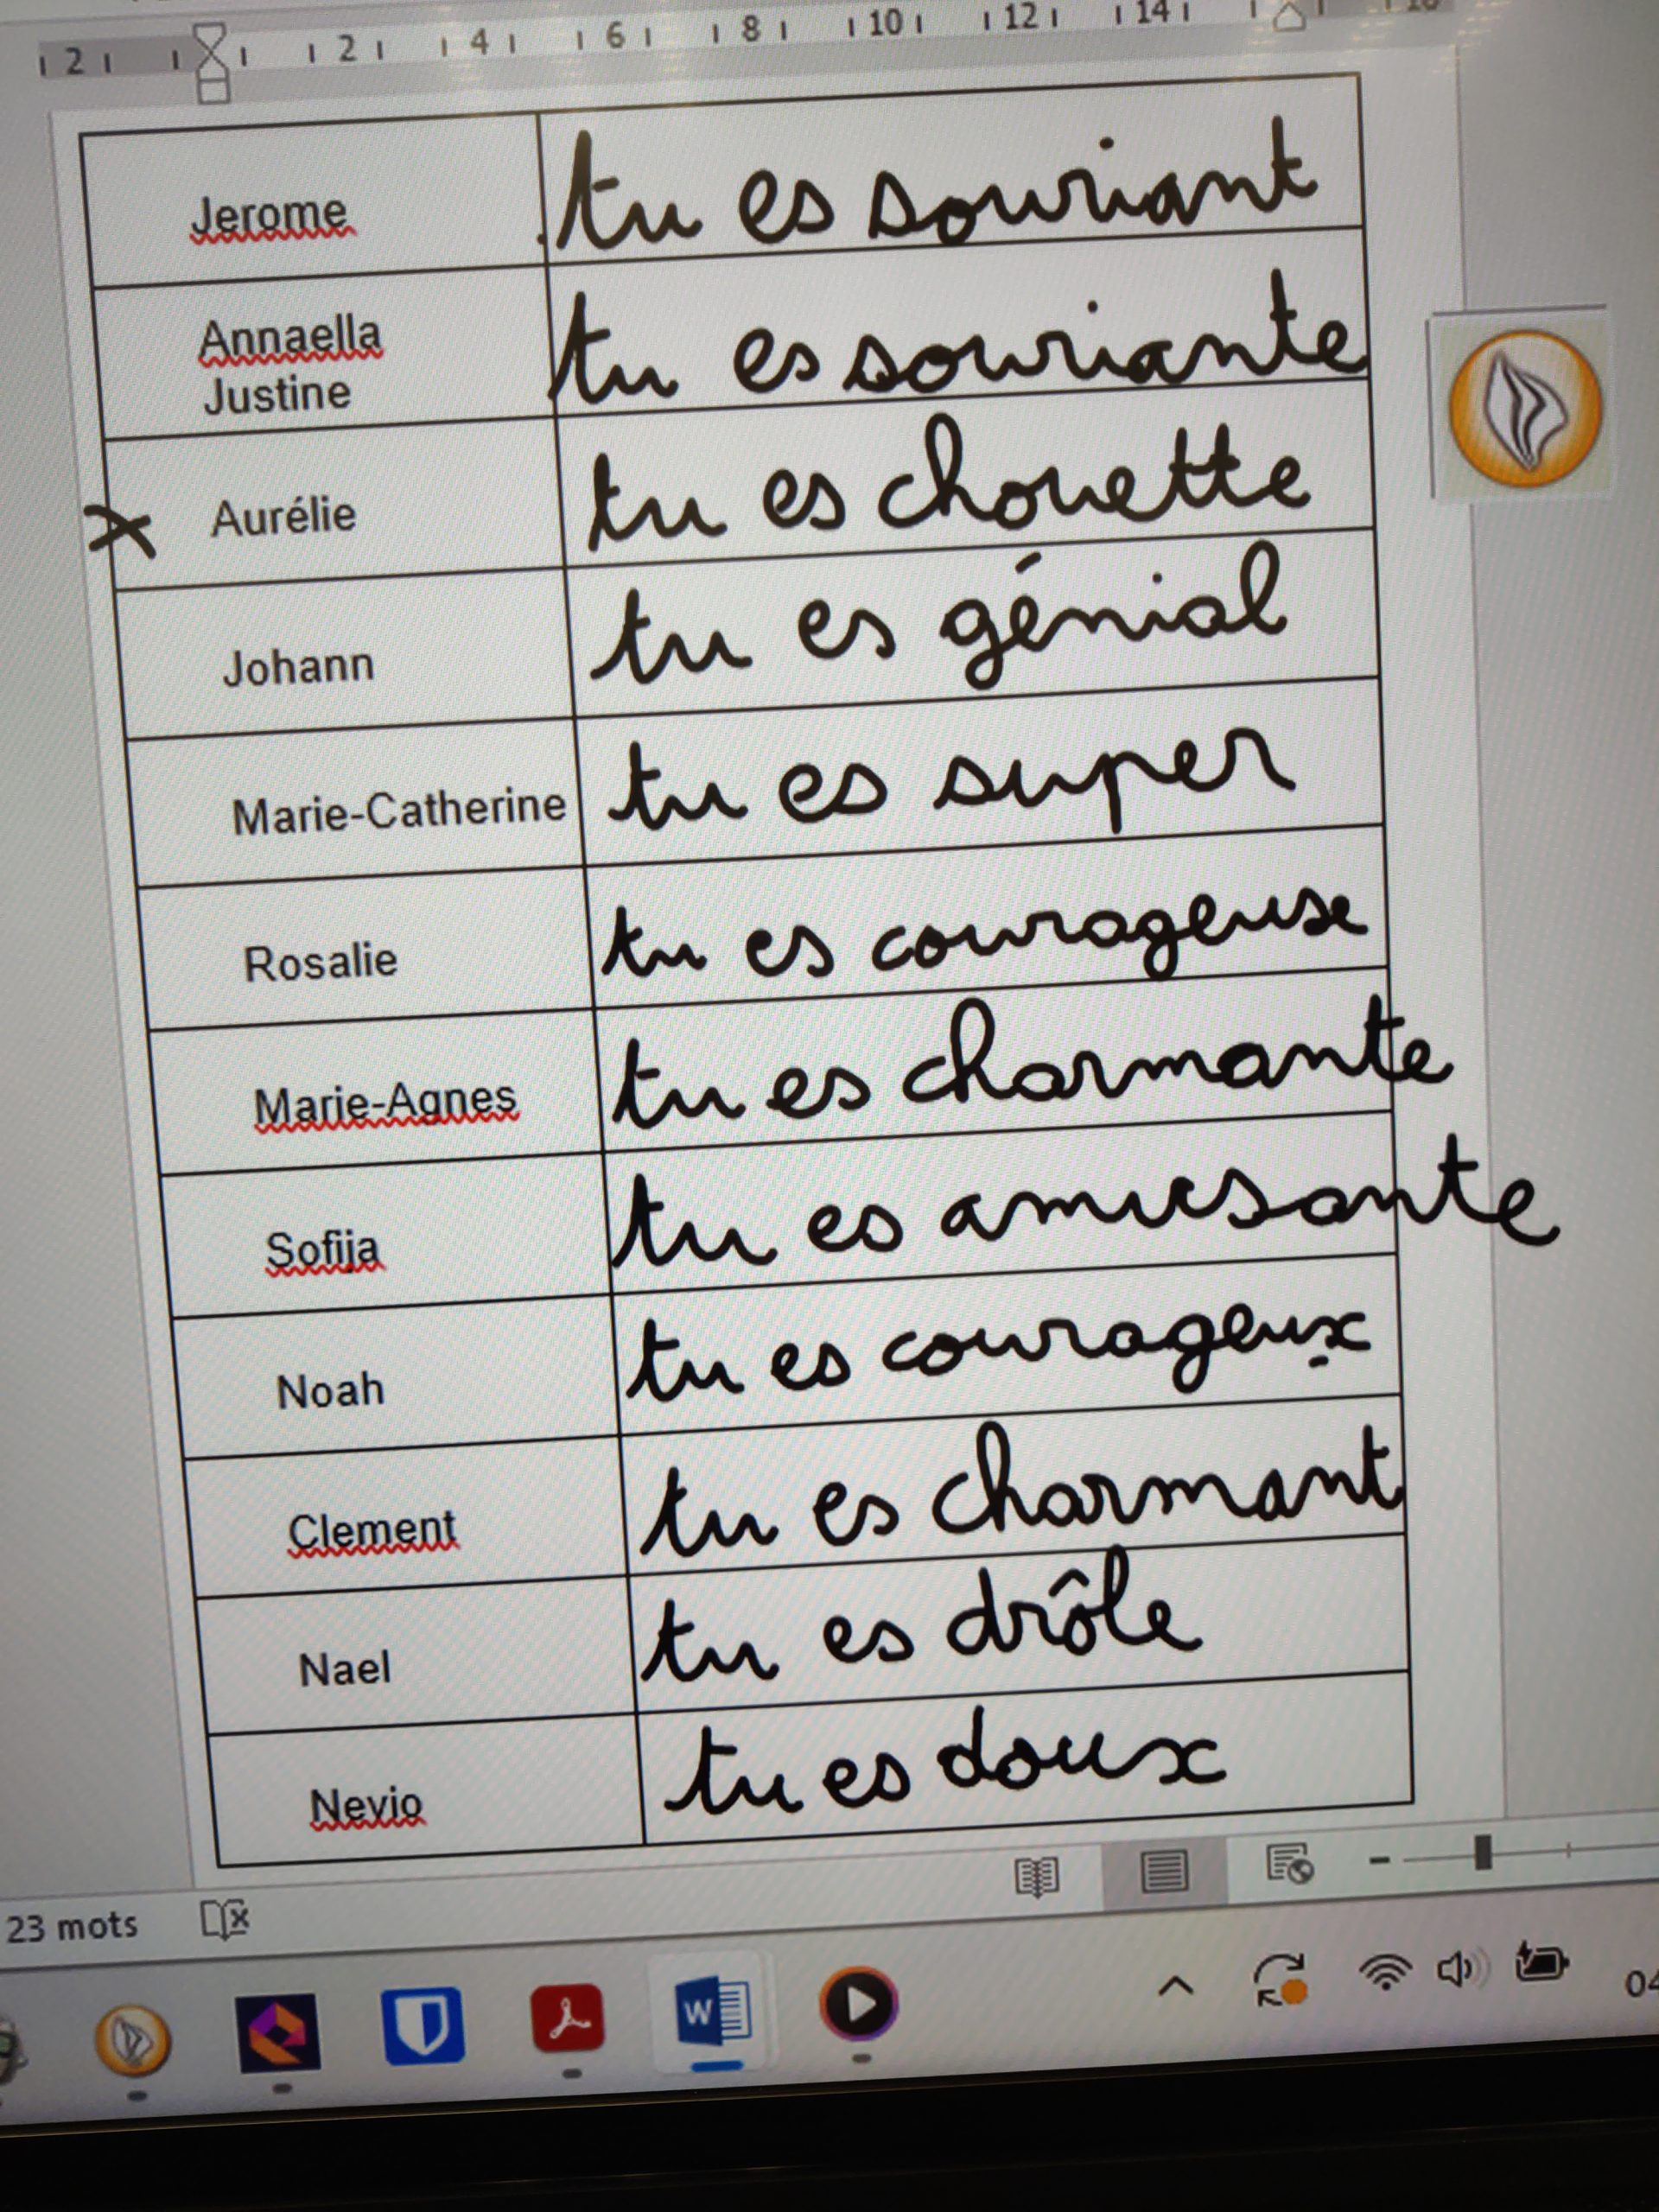 2 2 4 6 8 10 12 14
Jerome tu es souriant
Annaella
Justine tu es souriante
Aurélie tu es chouette
Johann tu es génial
Marie-Catherine tu es super
Rosalie tu es courageuse
Marie-Agnes tu es charmante
Sofija tu es amusante
Noah tu es courageux
Clement tu es charmant
Nael tu es drôle
Nevio tu es doux
23 mots
W
04